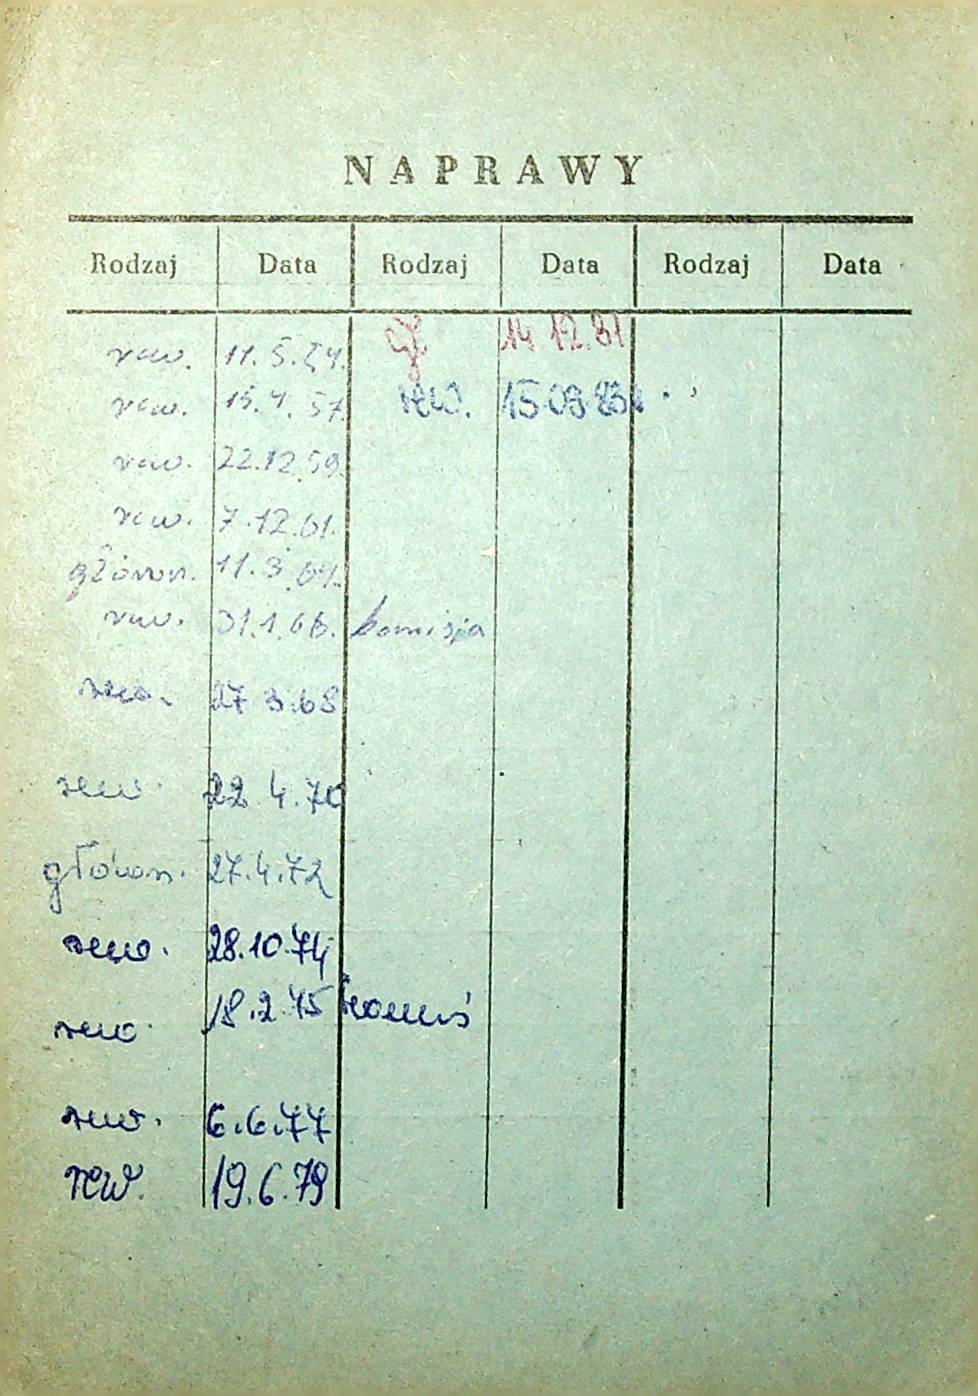 NAPRAWY
Rodzaj Data Rodzaj Data Rodzaj Data
rew. 11.5.54. gł 14 12.81
rew. 15.4.57. rew. 15 09 83r.
rew. 22.12.59.
rew. 7.12.61.
główn. 11.3.64.
rew. 31.1.66. komisja
rew. 27 3.68
rew. 22 4.70
główn. 27.4.72
rew. 28.10.74
rew. 18.2.75 komis
rew. 6.6.77
rew. 19.6.79